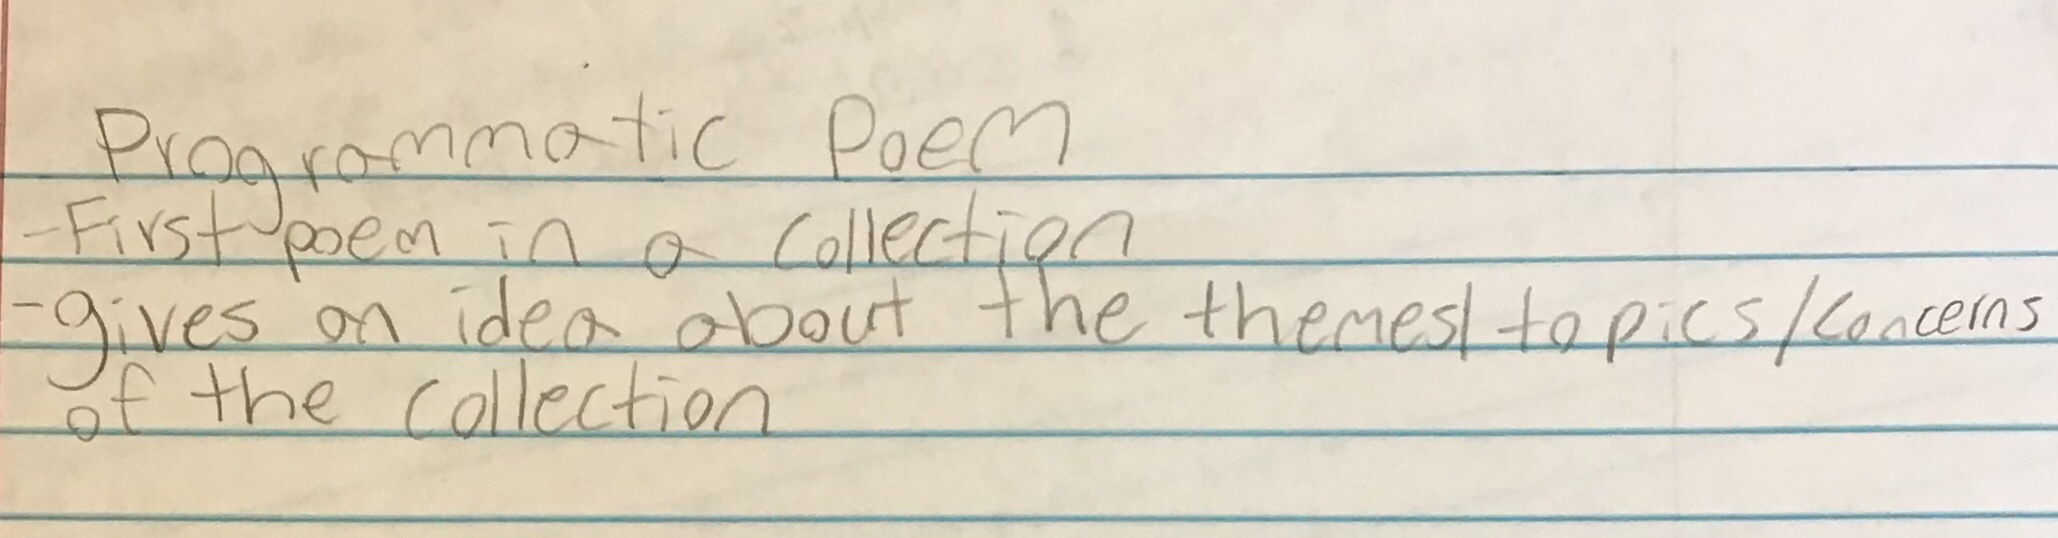 Programmatic Poem
-First poem in a collection
-gives an idea about the themes/topics/concerns
of the collection